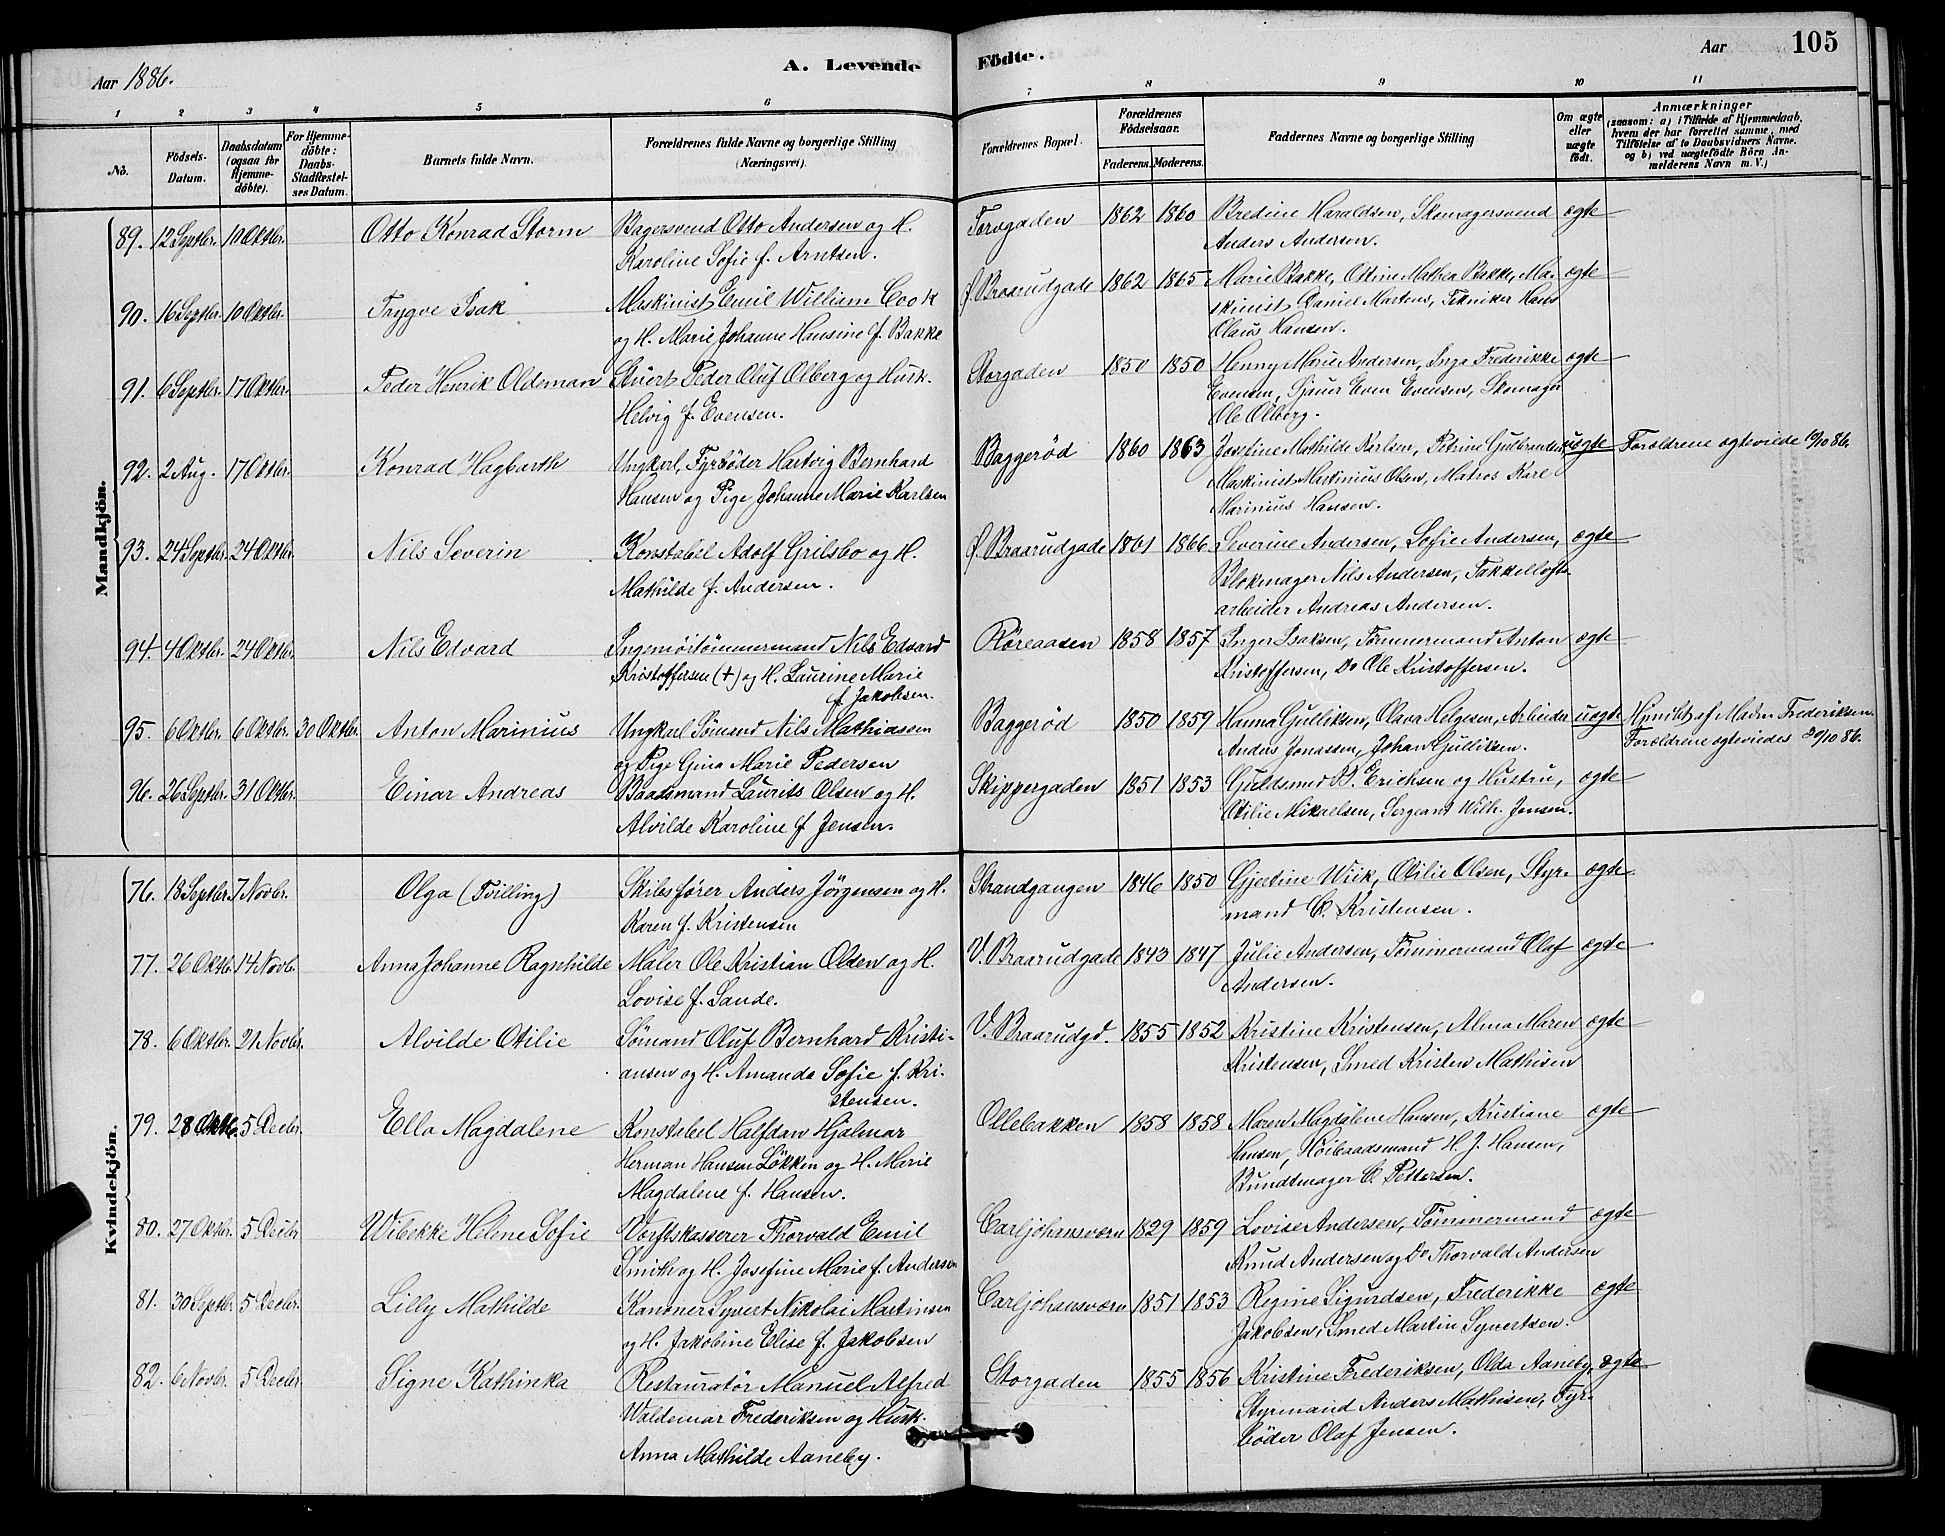 Aar 1886.
A. Levende
Födte.
Aar
105
1 2 3 4 5 6 7 8 9 10 11
No.
Födsels-Datum.
Daabsdatum (ogsaa for Hjemme-döbte).
For Hjemme-döbte: Daabs-Stadfæstel-ses Datum.
Barnets fulde Navn.
Forældrenes fulde Navne og borgerlige Stilling (Næringsvei).
Forældrenes Bopæl.
Forældrenes Födselsaar.
Faderens. Moderens.
Faddernes Navne og borgerlige Stilling
Om ægte eller uægte födt.
Anmærkninger
(saasom: a) i Tilfælde af Hjemmedaab,
hvem der har forrettet samme, med
Tilföielse af to Daabsvidners Navne,
og b) ved uægtefödte Börn An-
melderens Navn m. V.)
Mandkjön.
89. 12 Septbr. 10 Oktbr. Otto Konrad Storm Bagersvend Otto Andersen og H. Torvgaden 1862 1860 Bredine Haraldsen, Skomagersvend ægte
Karoline Sofie f. Arntsen. Anders Andersen.
90. 16 Septbr. 10 Oktbr. Trygve Isak Maskinist Emil William Cook Ø. Braarudgade 1862 1865 Marie Bakke, Ottine Mathea Bakke, Ma- ægte
og H. Marie Johanne Hansine f. Bakke skinist Daniel Martens, Tekniker Hans
Olaus Hansen.
91. 6 Septbr. 17 Oktbr. Peder Henrik Oldeman Stuert Peder Oluf Olberg og Hust. Storgaden 1850 1850 Henny Marie Andersen, Inga Frederikke ægte
Helvig f. Evensen. Evensen, Sjauer Even Evensen, Skomager
Ole Olberg.
92. 2 Aug. 17 Oktbr. Konrad Hagbarth Ungkarl, Fyrbøder Hartvig Bernhard Baggerød 1860 1863 Josefine Mathilde Karlsen, Petrine Gulbrandsen, uægte Forældrene ægteviede 10/10 86.
Hansen og Pige Johanne Marie Karlsen Maskinist Martinius Olsen, Matros Kare
Marinius Hansen.
93. 24 Septbr. 24 Oktbr. Nils Severin Konstabel Adolf Grilsbo og H. Ø. Braarudgade 1861 1866 Severine Andersen, Sofie Andersen, ægte
Mathilde f. Andersen. Blokmager Nils Andersen, Takkellofts-
arbeider Andreas Andersen.
94. 4 Oktbr. 24 Oktbr. Nils Edvard Ingeniörtömmermand Nils Edvard Røreaasen 1858 1857 Inger Isaksen, Tömmermand Anton ægte
Kristoffersen (+) og H. Laurine Marie Kristoffersen, Do Ole Kristoffersen.
f. Jakobsen.
95. 6 Oktbr. 6 Oktbr. 30 Oktbr. Anton Marinius Ungkarl Sömand Nils Mathiassen Baggerød 1850 1859 Hanna Gulliksen, Olava Helgesen, Arbeider uægte Hjmdbt. af Madm Frederiksen.
og Pige Gina Marie Pedersen Anders Jonassen, Johan Gulliksen. Forældrene ægteviedes 30/10 86.
96. 26 Septbr. 31 Oktbr. Einar Andreas Baadsmand Laurits Olsen og H. Skippergaden 1851 1853 Guldsmed B. Erichsen og Hustru, ægte
Alvilde Karoline f. Jensen. Otilie Mikaelsen, Sergeant Wilh. Jensen.
Kvindekjön.
76. 18 Septbr. 7 Novbr. Olga (Tvilling) Skibsfører Anders Jørgensen og H. Strandgangen 1846 1850 Gjertine Wiik, Otilie Olsen, Styr- ægte
Karen f. Kristensen mand C. Kristensen.
77. 26 Oktbr. 14 Novb. Anna Johanne Ragnhilde Maler Ole Kristian Olsen og H. V. Braarudgade 1843 1847 Julie Andersen, Tömmermand Olaf ægte
Lovise f. Sande. Andersen.
78. 6 Oktbr. 21 Novbr. Alvilde Otilie Sömand Oluf Bernhard Kristi- V. Braarudgd. 1855 1852 Kristine Kristensen, Alma Maren ægte
ansen og H. Amanda Sofie f. Kri- Kristensen, Smed Kristen Mathisen
stensen.
79. 28 Oktb. 5 Decbr. Ella Magdalene Konstabel Halfdan Hjalmar Ollebakken 1858 1858 Maren Magdalene Hansen, Kristiane ægte
Herman Hansen Løkken og H. Marie Hansen, Høibaadsmand H. J. Hansen,
Magdalene f. Hansen. Bundtmager C. Pettersen.
80. 27 Oktbr. 5 Decbr. Wibekke Helene Sofie Værftskasserer Thorvald Emil Carljohansværn 1829 1859 Lovise Andersen, Tömmermand ægte
Smith og H. Josefine Marie f. Andersen Knud Andersen og Do Thorvald Andersen
81. 30 Septbr 5 Decbr. Lilly Mathilde Kanoner Syvert Nikolai Martinsen Carljohansværn 1851 1853 Regine Sigurdsen, Frederikke ægte
og H. Jakobine Elise f. Jakobsen Jakobsen, Smed Martin Syvertsen.
82. 6 Novbr. 5 Decbr. Signe Kathinka Restauratør Manuel Alfred Storgaden 1855 1856 Kristine Frederiksen, Olda Aaneby, ægte
Waldemar Frederiksen og Hust. Styrmand Anders Mathisen, Fyr-
Anna Mathilde Aaneby. böder Olaf Jensen.